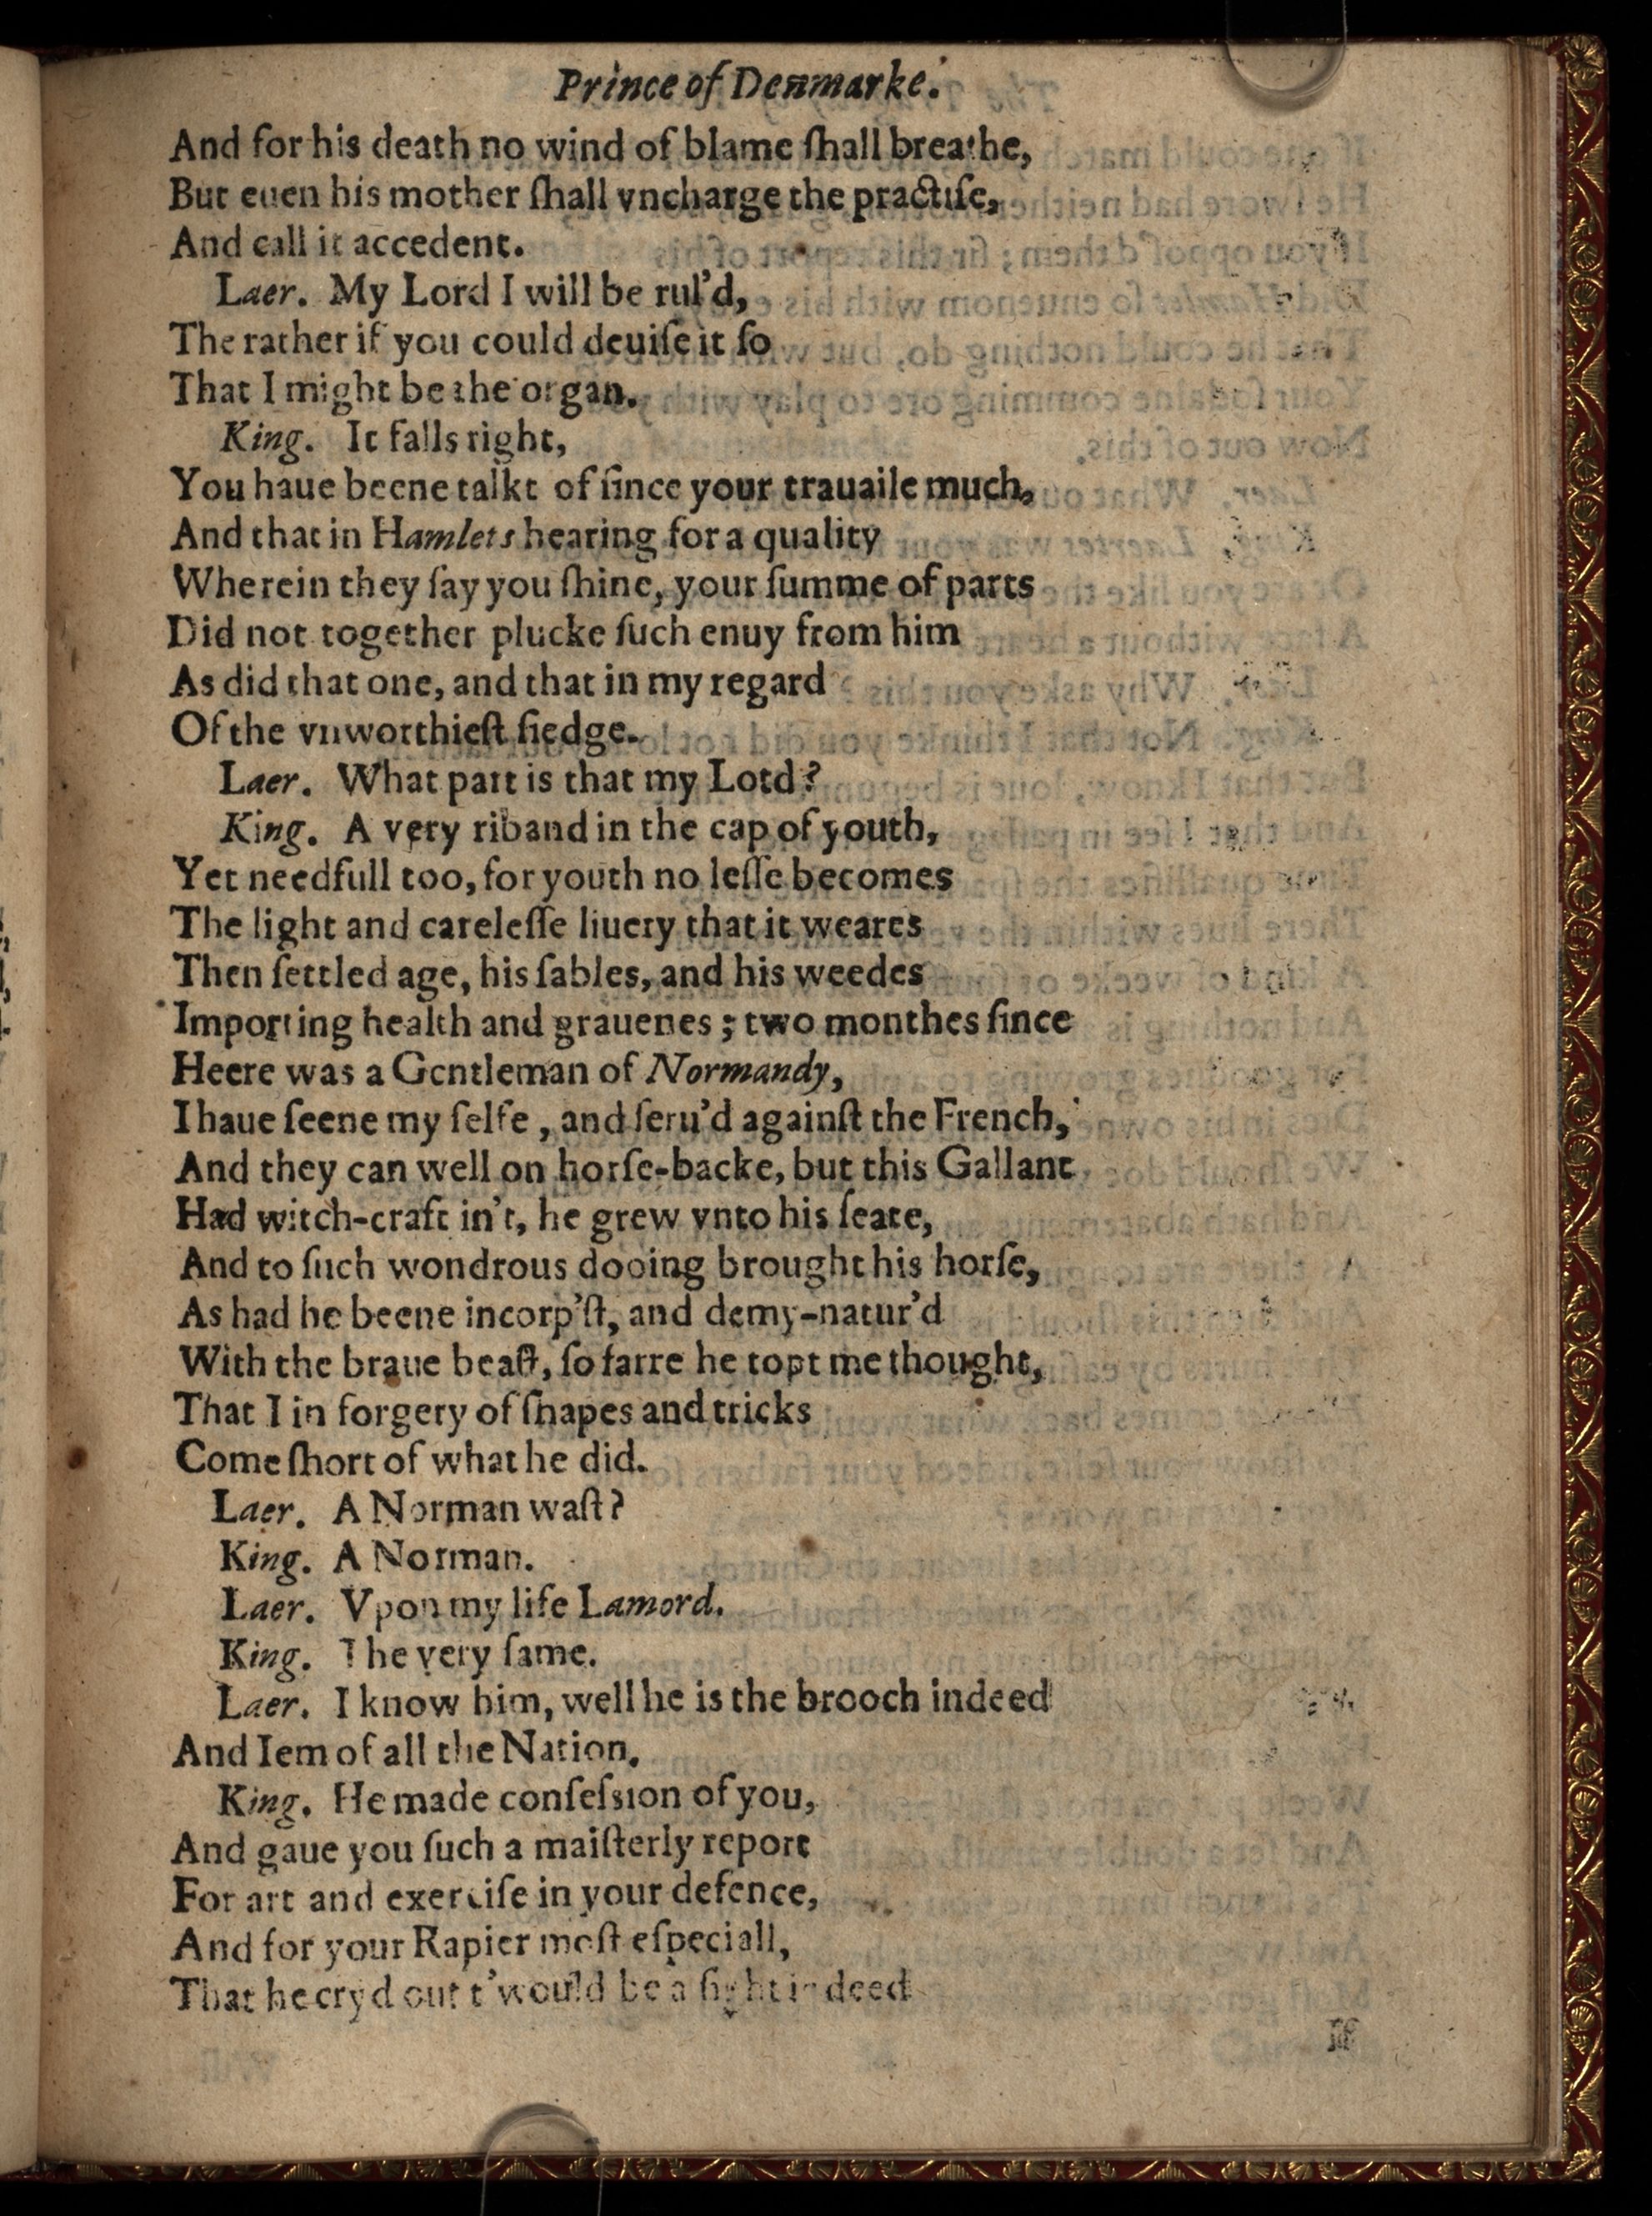 Prince of Denmarke.
And for his death no wind of blame ſhall breathe,
But euen his mother ſhall vncharge the practiſe,
And call it accedent.
Laer. My Lord I will be rul'd,
The rather if you could deuiſe it ſo
That I might be the organ.
King. It falls right,
You haue beene talkt of ſince your trauaile much,
And that in Hamlets hearing for a quality
Wherein they ſay you ſhine, your ſumme of parts
Did not together plucke ſuch enuy from him
As did that one, and that in my regard
Of the vnworthieſt ſiedge.
Laer. What part is that my Lord?
King. A very riband in the cap of youth,
Yet needfull too, for youth no leſſe becomes
The light and careleſſe liuery that it weares
Then ſettled age, his ſables, and his weedes
Importing health and grauenes; two monthes ſince
Heere was a Gentleman of Normandy,
I haue ſeene my ſelfe, and ſeru'd againſt the French,
And they can well on horſe-backe, but this Gallant
Had witch-craft in't, he grew vnto his ſeate,
And to ſuch wondrous dooing brought his horſe,
As had he beene incorp'ſt, and demy-natur'd
With the braue beaſt, ſo farre he topt me thought,
That I in forgery of ſhapes and tricks
Come ſhort of what he did.
Laer. A Norman waſt?
King. A Norman.
Laer. Vpon my life Lamord.
King. The very ſame.
Laer. I know him, well he is the brooch indeed
And Iem of all the Nation.
King. He made confeſsion of you,
And gaue you ſuch a maiſterly report
For art and exerciſe in your defence,
And for your Rapier moſt eſpeciall,
That he cryd out t'would be a ſight indeed
If